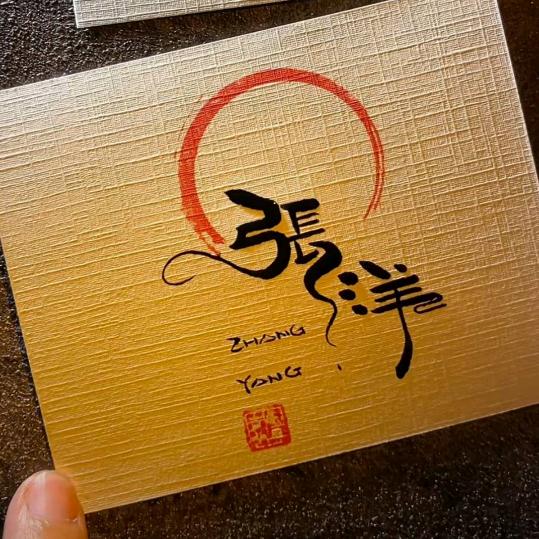 張洋
ZHANG
YANG